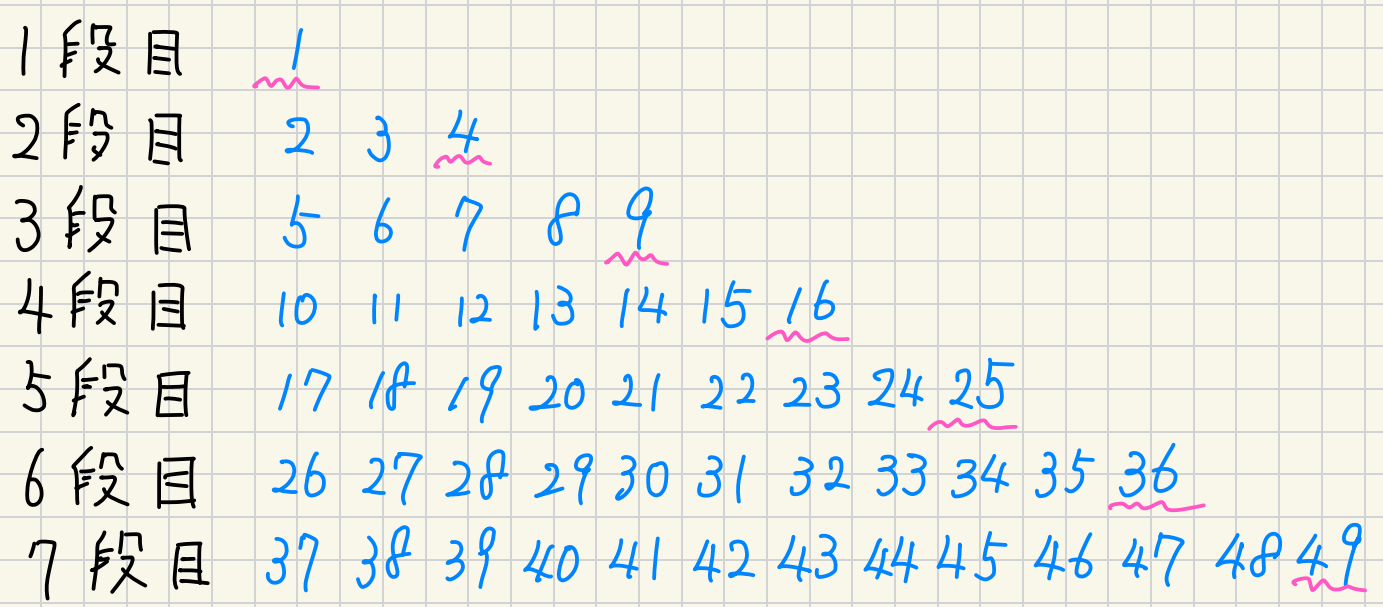 1段目 1
2段目 2 3 4
3段目 5 6 7 8 9
4段目 10 11 12 13 14 15 16
5段目 17 18 19 20 21 22 23 24 25
6段目 26 27 28 29 30 31 32 33 34 35 36
7段目 37 38 39 40 41 42 43 44 45 46 47 48 49